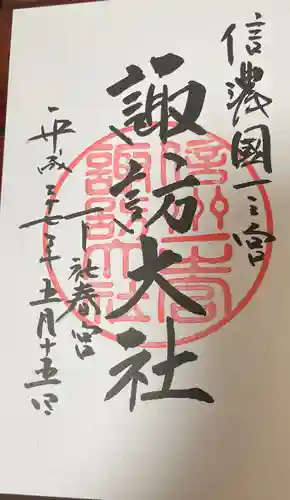 信濃國一之宮
諏訪大社
下社春宮
平成三十三年五月十五日
信州一之宮
諏訪大社